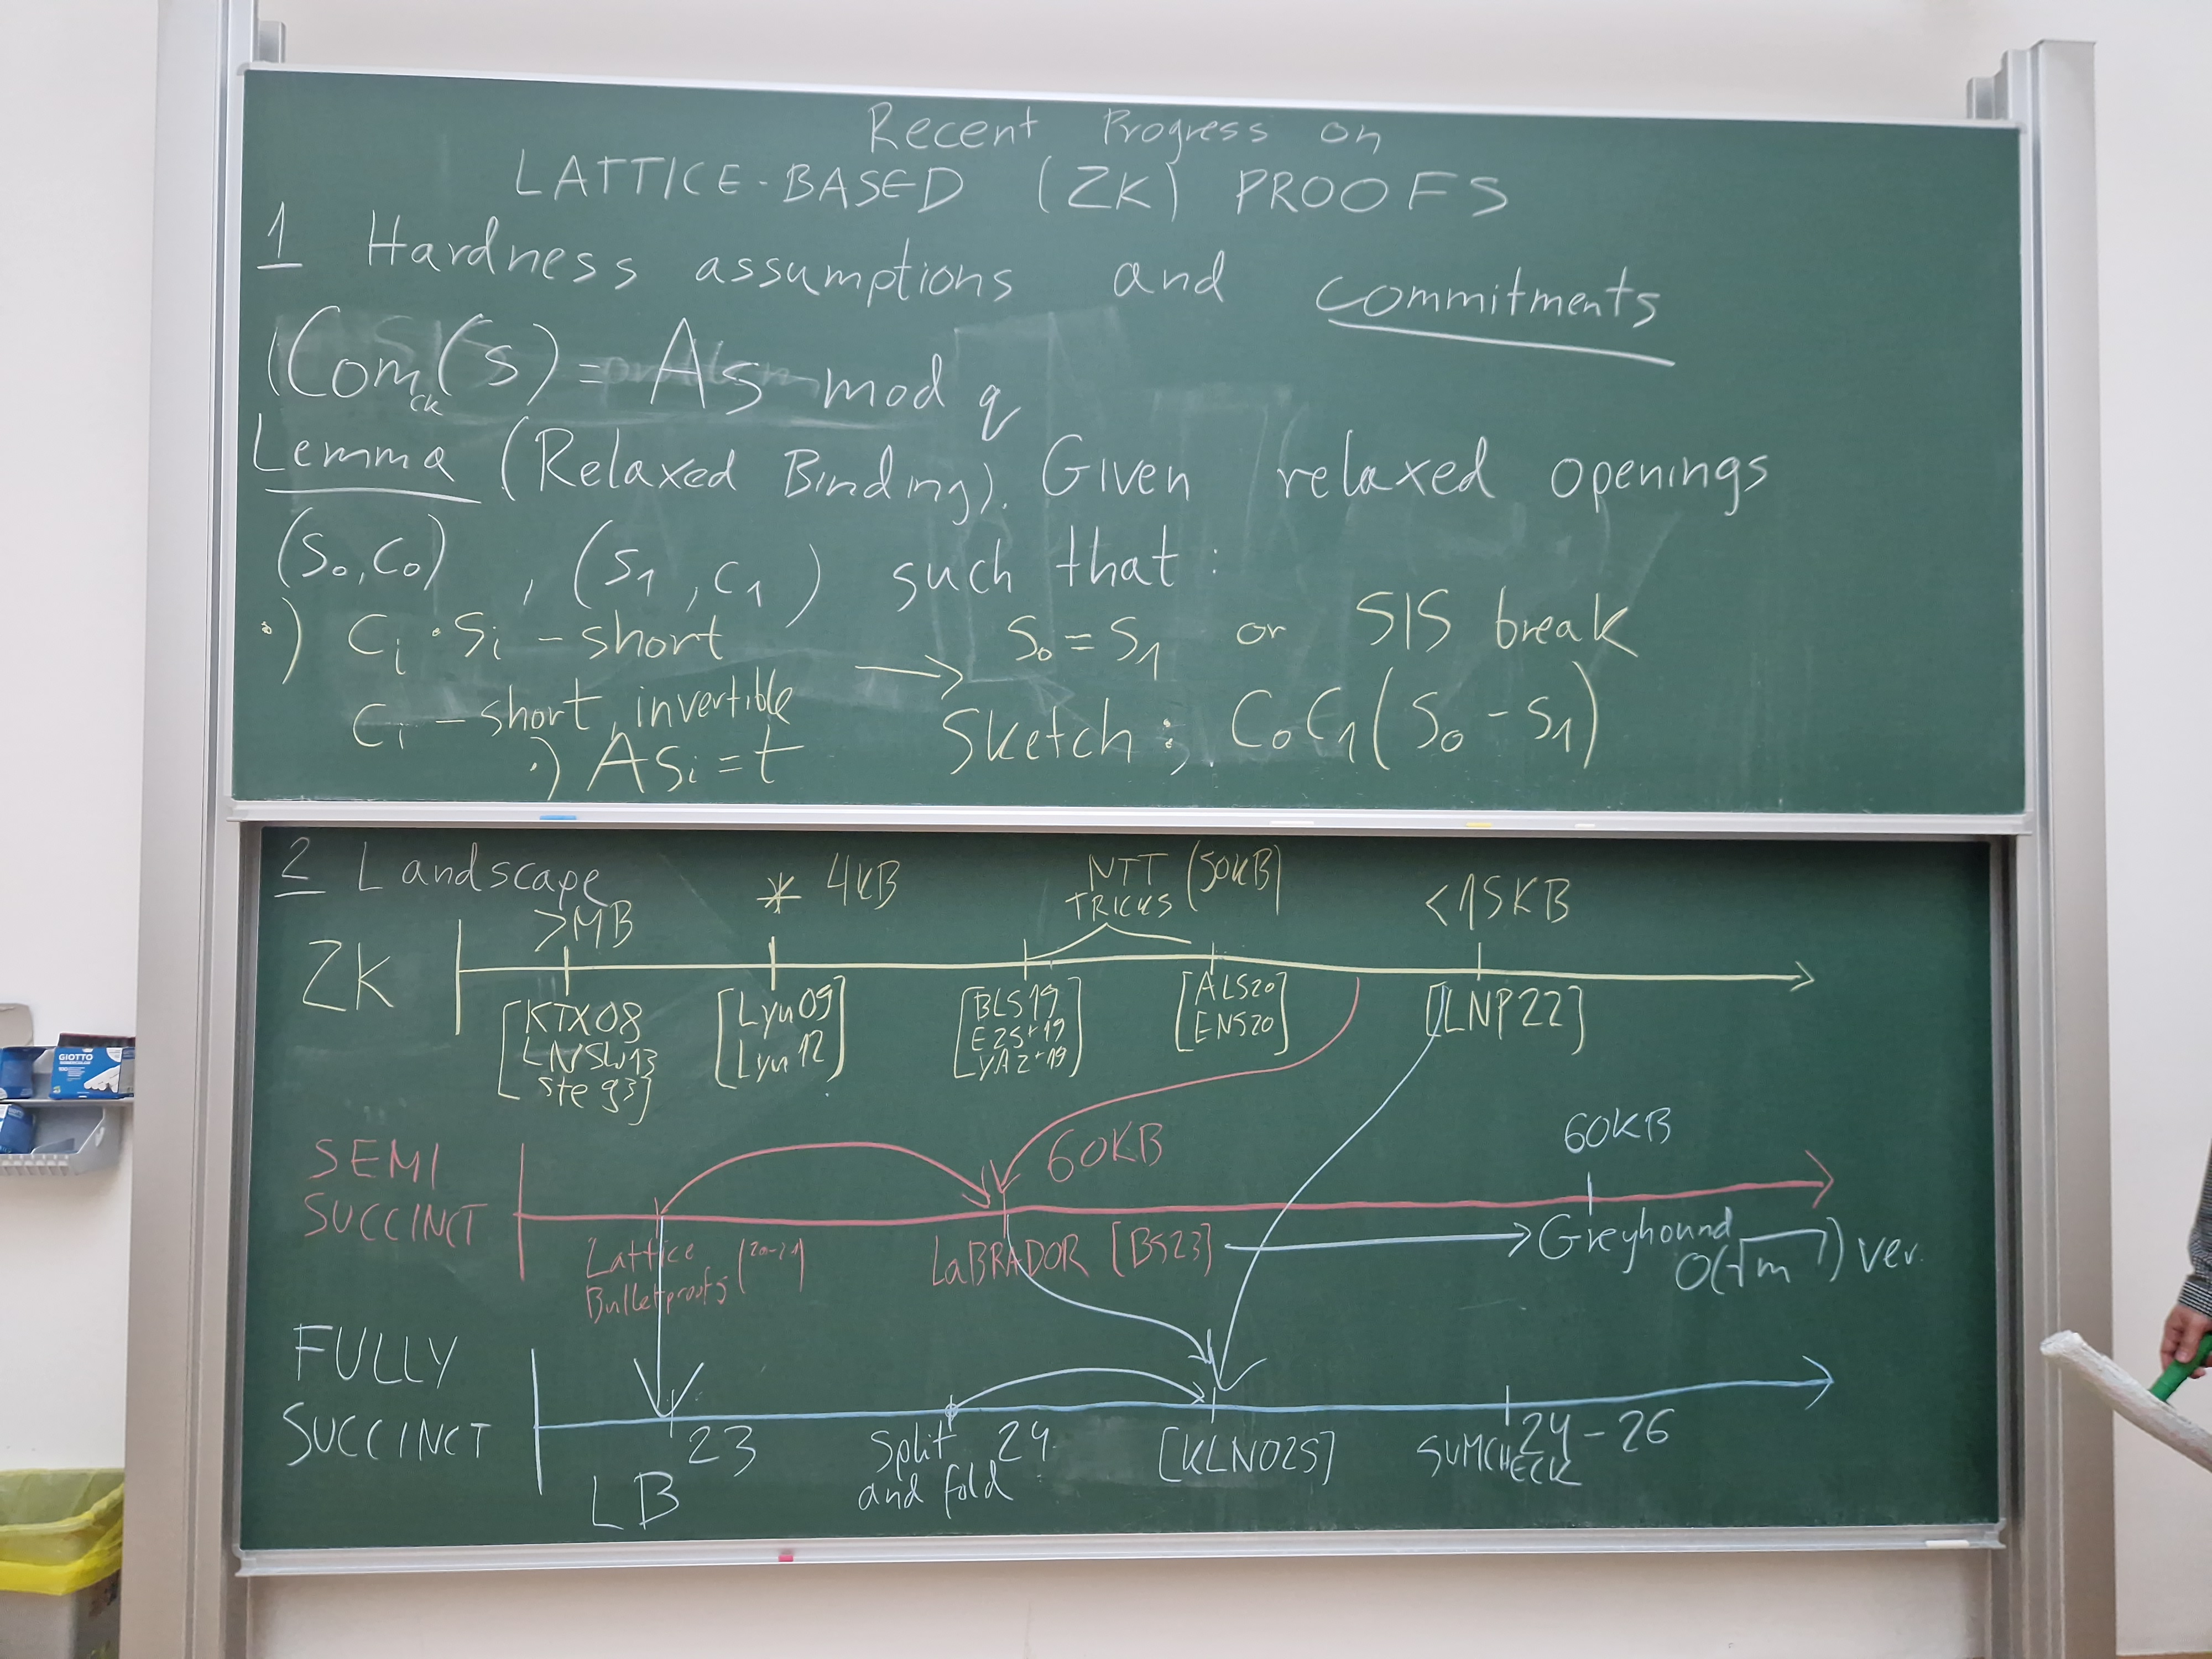 Recent Progress on
LATTICE-BASED (ZK) PROOFS
1 Hardness assumptions and commitments
Com_ck(s) = As mod q
Lemma (Relaxed Binding). Given relaxed openings
(s₀,c₀), (s₁,c₁) such that:
·) cᵢ·sᵢ - short
cᵢ - short, invertible
·) Asᵢ = t
→ s₀ = s₁ or SIS break
Sketch: c₀c₁(s₀ - s₁)
2 Landscape
ZK
>MB
* 4KB
NTT TRICKS (50KB)
<15KB
[KTX08
LNSW13
Ste93]
[Lyu09
Lyu12]
[BLS19
EZS+19
YAZ+19]
[ALS20
ENS20]
[LNP22]
SEMI
SUCCINCT
60KB
60KB
Lattice
Bulletproofs (20-21)
LaBRADOR [BS23]
Greyhound
O(√m) ver.
FULLY
SUCCINCT
LB 23
Split
and fold 24
[KLNO25]
SUMCHECK 24-26
GIOTTO